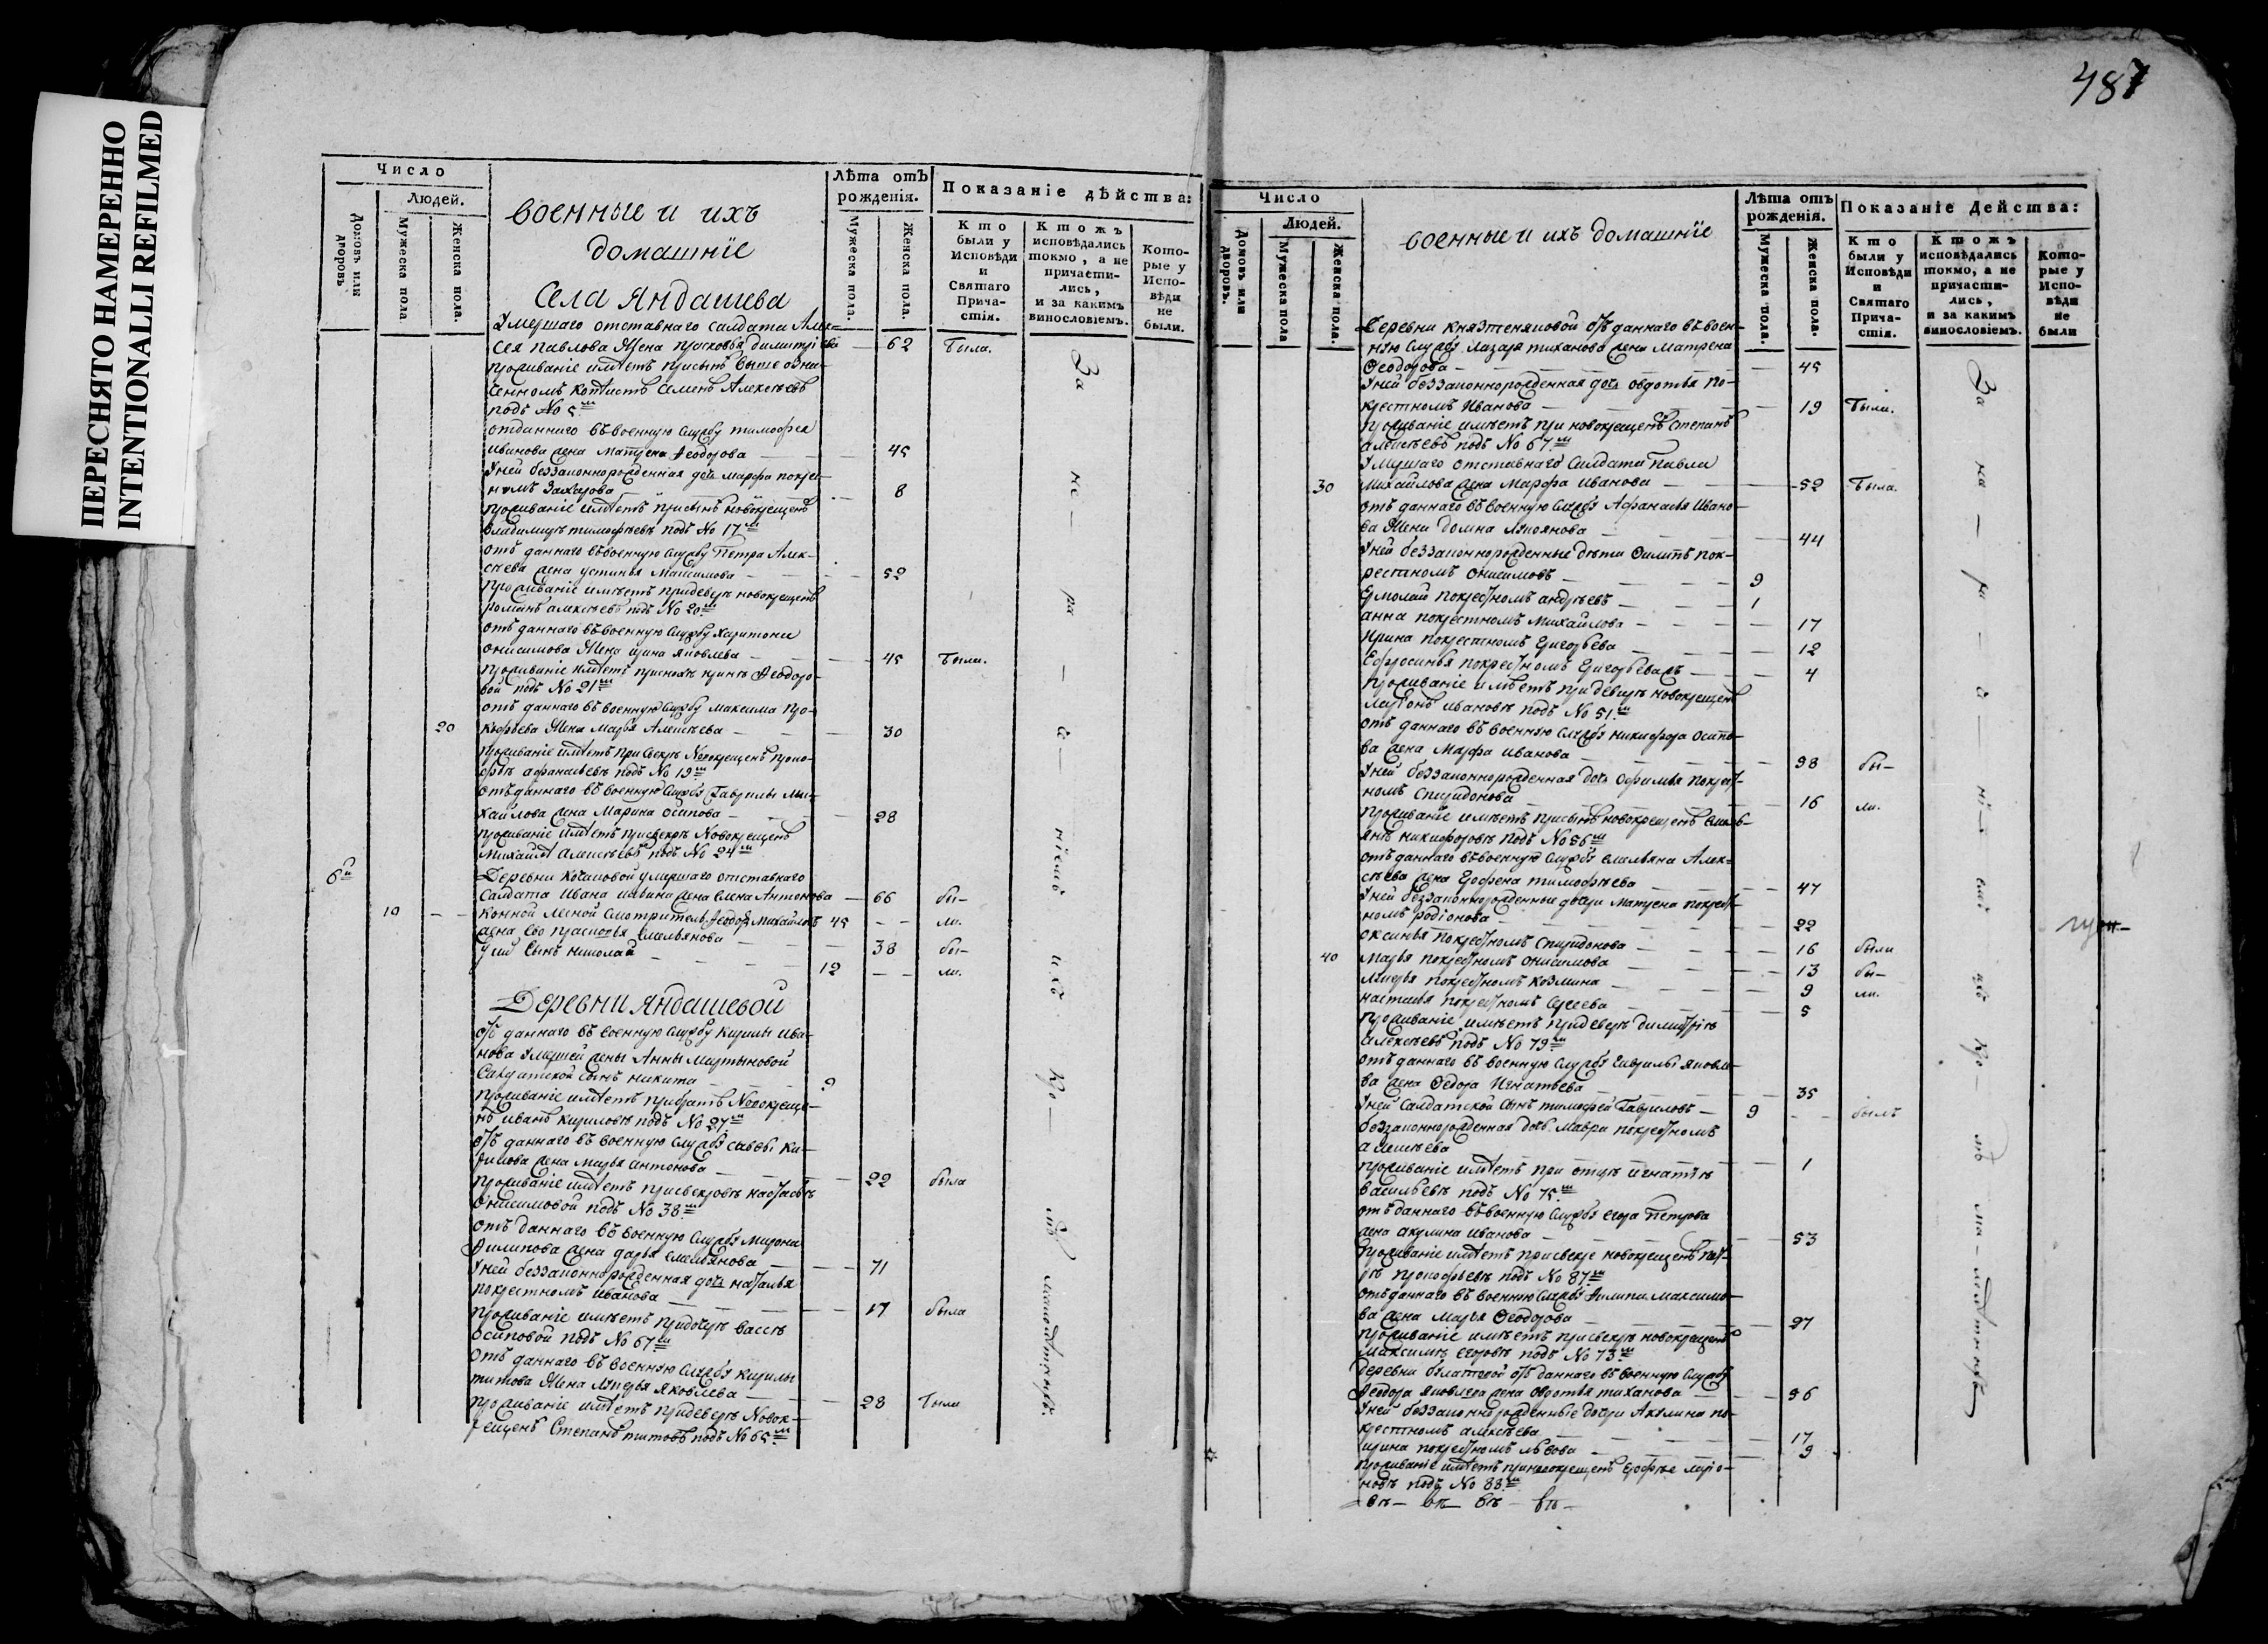 ПЕРЕСНЯТО НАМЕРЕННО
INTENTIONALLI REFILMED
487
Число
Людей.
Домовъ или дворовъ
Мужеска пола.
Женска пола.
военные и ихъ
домашніе
Лѣта отъ рожденія.
Мужеска пола.
Женска пола.
Показаніе дѣйства:
Кто были у Исповѣди и Святаго Причастія.
Ктожъ исповѣдались токмо, а не причастились, и за какимъ винословіемъ.
Которые у Исповѣди не были.
Села Яндашева
Умершаго отставнаго салдата Алек-
сея Павлова Жена прасковья димитріева — 62 была.
проживаніе имѣетъ присынѣ выше озна-
ченномъ Семенъ Алексѣевъ
подъ No 5м
отданнаго въ военную службу тимофея
иванова жена матрена Ѳеодорова — 45
Уней беззаконнорожденная дочь марфа покрес-
номъ Захарова — 8
проживаніе имѣетъ присынѣ новокрещенѣ
владимирѣ тимофѣевѣ подъ No 17м
отъ даннаго въ военную службу Петра Алек-
сѣева жена устинья Максимова — 52
проживаніе имѣетъ придеверѣ новокрещенѣ
романѣ алексѣевѣ подъ No 20м
отъ даннаго въ военную службу харитона
онисимова Жена ирина яковлева — 45 были.
проживаніе имѣетъ Ѳеодоро-
вой подъ No 21м
отъ даннаго въ военную службу максима про-
20 кофьева Жена марья Алексѣева — 30
проживаніе имѣетъ при свекрѣ Новокрещенѣ проко-
фьѣ афанасьевѣ подъ No 19м
отъ даннаго въ военную службу Гаврилы Ми-
хайлова жена Марина осипова — 28
проживаніе имѣетъ присвекрѣ Новокрещенѣ
михайлѣ алексѣевѣ подъ No 24м
6й Деревни умершаго отставнаго
салдата Ивана жена Елена Антонова — 66 бы-
10 — Конной Лесной Смотритель Ѳеодоръ Михайловъ 45 — ли.
жена ево прасковья Емельянова — 38 бы-
у них сынъ николай — 12 — ли.
Деревни Яндашевой
отъ даннаго въ военную службу кирилы ива-
нова умершей жены Анны мартыновой
Салдатской сынъ никита — 9
проживаніе имѣетъ прибратѣ Новокреще-
нѣ иванѣ кириловѣ подъ No 27м
отъ даннаго въ военную службу саввы ки-
рилова жена марья антонова — 22 была
проживаніе имѣетъ присвекровѣ настасьѣ
Онисимовой подъ No 38м
отъ даннаго въ военную службу мирона
Филипова жена дарья емельянова — 71
Уней беззаконнорожденная дочь наталья
покрестномъ иванова — 17 была
проживаніе имѣетъ придочерѣ вассѣ
осиповой подъ No 67м
Отъ даннаго въ военную службу кирилы
титова Жена лукерья яковлева — 28 были
проживаніе имѣетъ придеверѣ Новок-
рещенѣ Степанѣ титовѣ подъ No 65м
За не — ра — ѣ — ніемъ ихъ кро — мѣ малолѣтныхъ.
Число
Людей.
Домовъ или дворовъ.
Мужеска пола
Женска пола.
военные и ихъ домашніе
Лѣта отъ рожденія.
Мужеска пола.
Женска пола.
Показаніе Действа:
Кто были у Исповѣди и Святаго Причастія.
Ктожъ исповѣдались токмо, а не причастились, и за какимъ винословіемъ.
Которые у Исповѣди не были
Деревни князтеняковой отъ даннаго въ воен-
ную службу Лазаря тиханова жена Матрена
Ѳеодорова — 45
Уней беззаконнорожденная дочь овдотья по-
крестномъ Иванова — 19 были.
проживаніе имѣетъ при новокрещенѣ Степанѣ
алексѣевѣ подъ No 67м
Умершаго отставнаго Салдата Павла
30 Михайлова жена Марфа Иванова — 52 была.
отъ даннаго въ военную службу Афанасья Ивано-
ва Жена домна — 44
Уней беззаконнорожденные дѣти Филипъ пок-
рестномъ онисимовъ — 9
Ермолай покрестномъ андрѣевъ — 1
анна покрестномъ михайлова — 17
Ирина покрестномъ Григорьева — 12
Ефросинья покрестномъ Григорьева — 4
проживаніе имѣетъ придеверѣ новокрещенѣ
ивановѣ подъ No 51м
отъ даннаго въ военную службу никифора Осипо-
ва жена Марфа иванова — 38 бы-
Уней беззаконнорожденная дочь Офимья покрест-
номъ Спиридонова — 16 ли.
проживаніе имѣетъ присынѣ новокрещенѣ Емель-
янѣ никифоровѣ подъ No 56м
отъ даннаго въ военную службу емельяна Алек-
сѣева жена тимофѣева — 47
Уней беззаконнорожденные дочери Матрена покрест-
номъ родіонова — 22
оксинья покрестномъ Спиридонова — 16 были
40 марья покрестномъ онисимова — 13 бы-
покрестномъ Козмина — 9 ли.
настасья покрестномъ Сергеева — 5
проживаніе имѣетъ придеверѣ димитріѣ
алексѣевѣ подъ No 79м
отъ даннаго въ военную службу Гаврилы яковле-
ва жена Ѳедора Игнатьева — 35
Уней Салдатской сынъ тимофей Гавриловъ — 9 — былъ
беззаконнорожденная дочь мавра покрестномъ
алексѣева — 1
проживаніе имѣетъ при отцѣ игнатѣѣ
васильевѣ подъ No 75м
отъ даннаго въ военную службу егора Петрова
жена акулина иванова — 53
проживаніе имѣетъ присвекрѣ новокрещенѣ пет-
рѣ прокофьевѣ подъ No 87м
отъ даннаго въ военную службу Филипа максимо-
ва жена марья Ѳеодорова — 27
проживаніе имѣетъ присвекрѣ новокрещенѣ
максимѣ егоровѣ подъ No 73м
деревни отъ даннаго въ военную службу
Ѳеодора яковлева жена овдотья тиханова — 56
Уней беззаконнорожденные дочери Акулина по-
крестномъ алексѣева — 17
ирина покрестномъ львова — 9
проживаніе имѣетъ
подъ No 88м